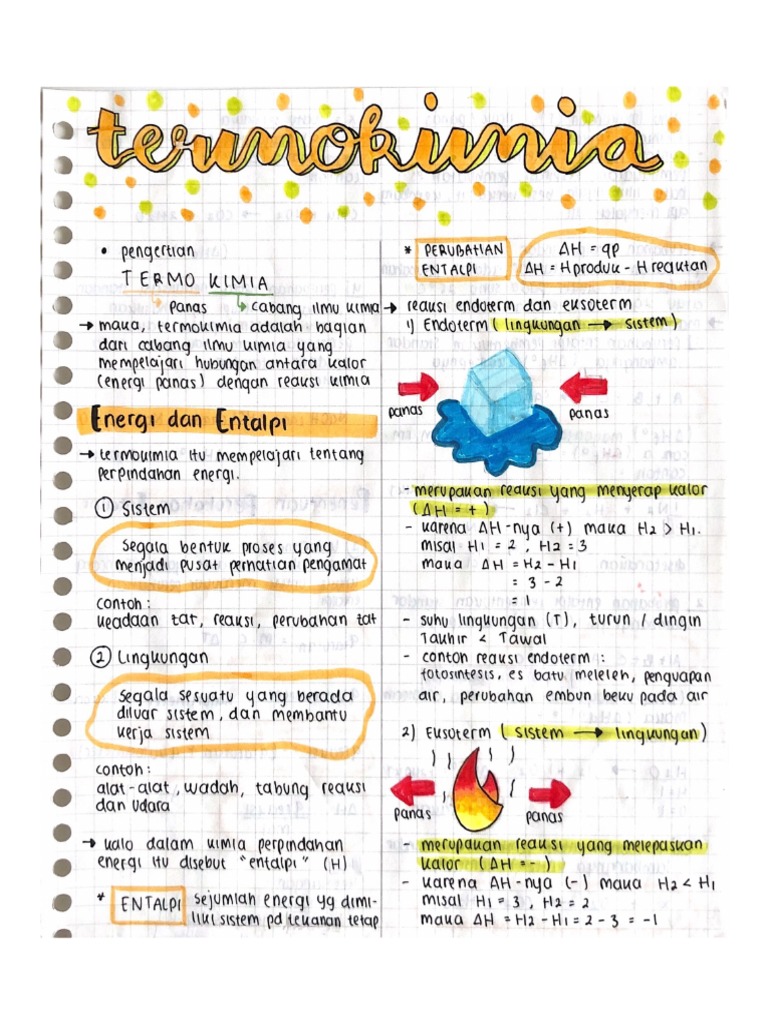 termokimia
• pengertian
TERMO KIMIA
panas cabang ilmu kimia
→ maka, termokimia adalah bagian
dari cabang ilmu kimia yang
mempelajari hubungan antara kalor
(energi panas) dengan reaksi kimia
Energi dan Entalpi
→ termokimia itu mempelajari tentang
perpindahan energi.
① Sistem
Segala bentuk proses yang
menjadi pusat perhatian pengamat
contoh:
keadaan zat, reaksi, perubahan zat
② Lingkungan
Segala sesuatu yang berada
diluar sistem, dan membantu
kerja sistem
contoh:
alat-alat, wadah, tabung reaksi
dan udara
→ kalo dalam kimia perpindahan
energi itu disebut "entalpi" (H)
* ENTALPI Sejumlah energi yg dimi-
liki sistem pd tekanan tetap
* PERUBAHAN
ENTALPI
ΔH = qp
ΔH = H produk - H reaktan
→ reaksi endoterm dan eksoterm
1) Endoterm (lingkungan → sistem)
panas panas
- merupakan reaksi yang menyerap kalor
(ΔH = +)
- karena ΔH-nya (+) maka H2 > H1.
misal H1 = 2, H2 = 3
maka ΔH = H2 - H1
= 3 - 2
= 1
- suhu lingkungan (T), turun / dingin
Takhir < Tawal
- contoh reaksi endoterm:
fotosintesis, es batu meleleh, penguapan
air, perubahan embun beku pada air
2) Eksoterm (sistem → lingkungan)
panas panas
- merupakan reaksi yang melepaskan
kalor (ΔH = -)
- karena ΔH-nya (-) maka H2 < H1
misal H1 = 3, H2 = 2
maka ΔH = H2 - H1 = 2 - 3 = -1